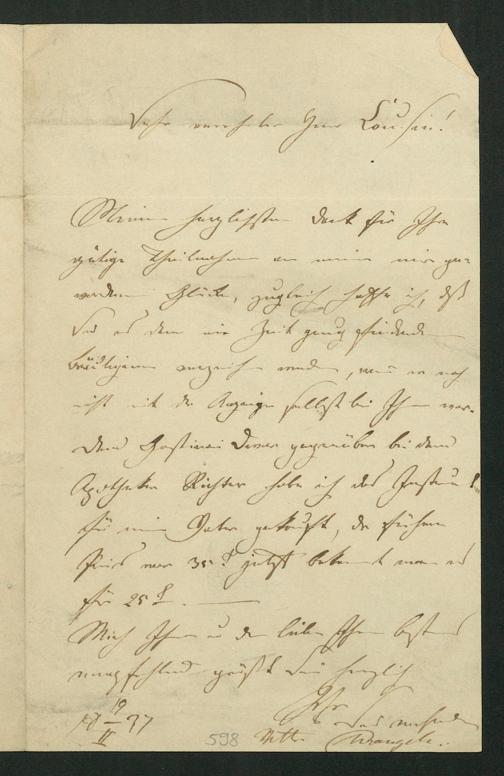 Sehr verehrter Herr Cousin!
Meinen herzlichsten Dank für Ihre
gütige Theilnahme an meinem mir ge-
wordenen Glücke, zugleich hoffe ich, daß
Sie es dem nie Zeit genug findenden
Bräutigam verzeihen werden, wenn er noch
nicht mit der Anzeige selbst bei Ihnen war.
Dem Gostinoi Dwor gegenüber bei dem
Apotheker Richter habe ich das Instrument
für meinen Vater gekauft, der frühere
Preis war 35 jetzt bekommt man es
für 25
Mich Ihnen u den lieben Ihren bestens
empfehlend grüßt Sie herzlich
Ihr
19
18 — 37
II
598
Wrangell.